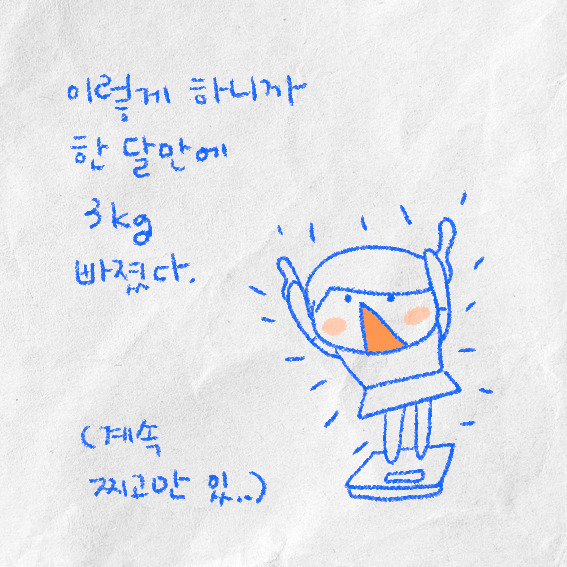 이렇게 하니까
한 달만에
3kg
빠졌다.
(계속
찌고만 있..)